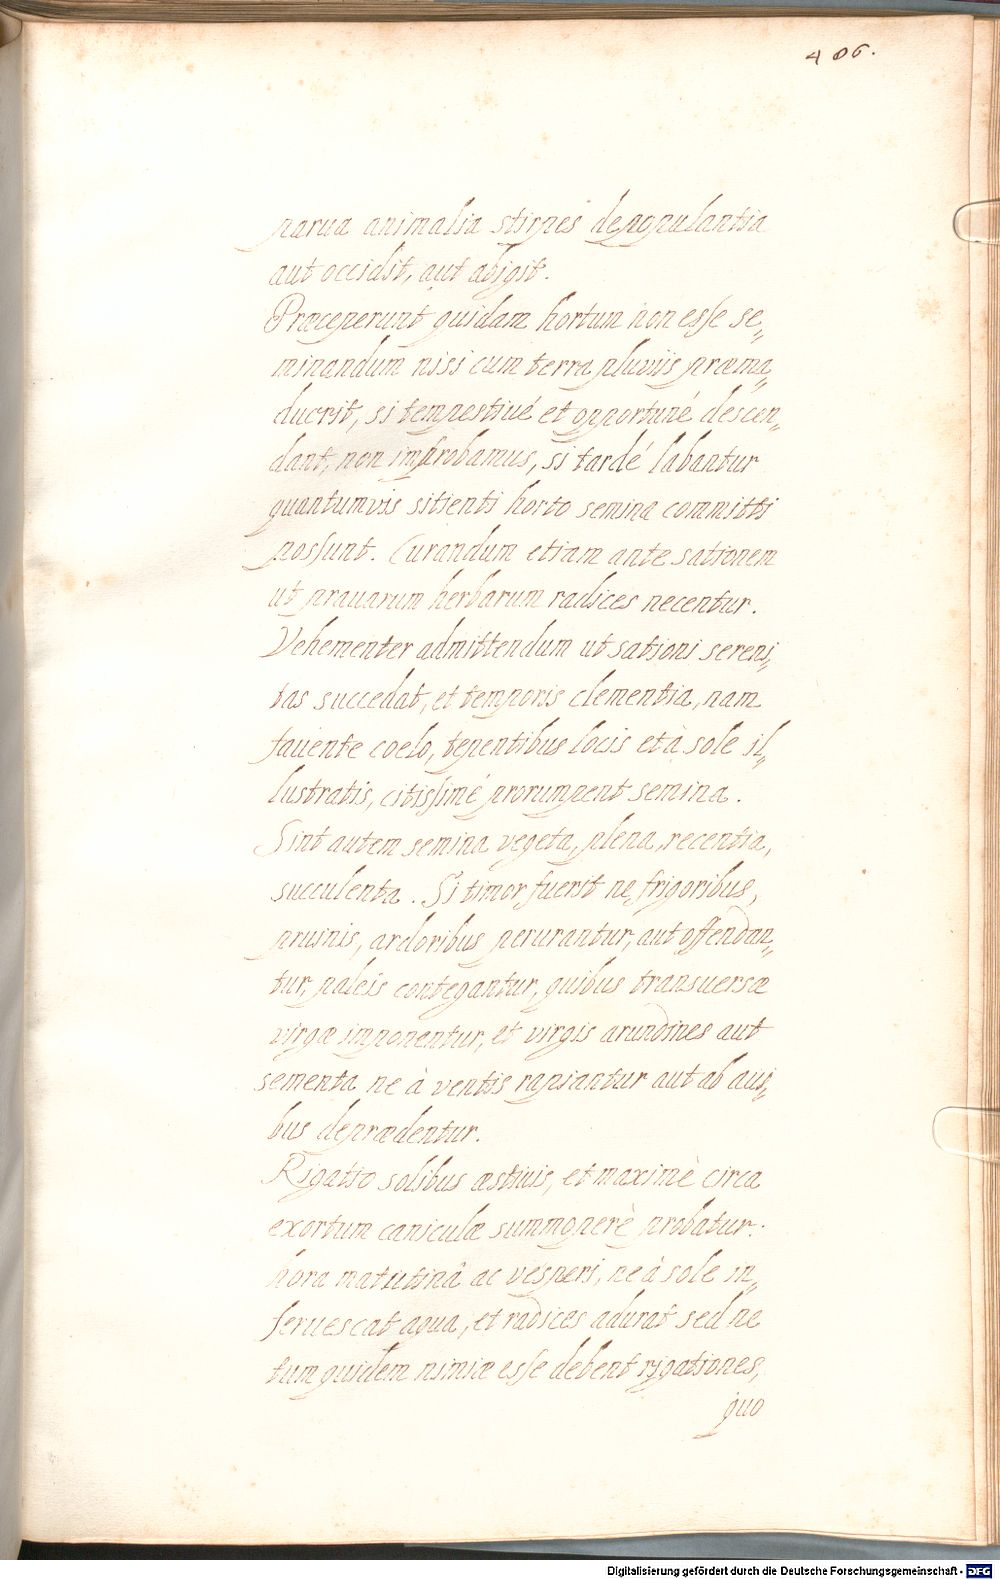 406.
parua animalia stirpes depopulantia
aut occidit, aut abigit.
Præceperunt quidam hortum non esse se„
minandum nisi cum terra pluviis præma„
ducrit, si tempestiué et opportuné descen„
dant, non improbamus, si tardé labantur
quantumvis sitienti horto semina committi
possunt. Curandum etiam ante sationem
ut prauarum herbarum radices necentur.
Vehementer admittendum ut sationi sereni„
tas succedat, et temporis clementia, nam
fauente coelo, tepentibus locis et à sole il„
lustratis, citissimé prorumpent semina.
Sint autem semina vegeta, plena, recentia,
succulenta. Si timor fuerit ne frigoribus,
pruinis, ardoribus perurantur, aut offendan„
tur, paleis contegantur, quibus transuersæ
virgæ imponentur, et virgis arundines aut
sementa ne à ventis rapiantur aut ab aui„
bus deprædentur.
Rigatio solibus æstiuis, et maximè circa
exortum caniculæ summoperè probatur.
hora matutinâ ac vesperi, ne à sole in„
feruescat aqua, et radices adurat sed ne
tum quidem nimiæ esse debent rigationes,
quo
Digitalisierung gefördert durch die Deutsche Forschungsgemeinschaft - DFG